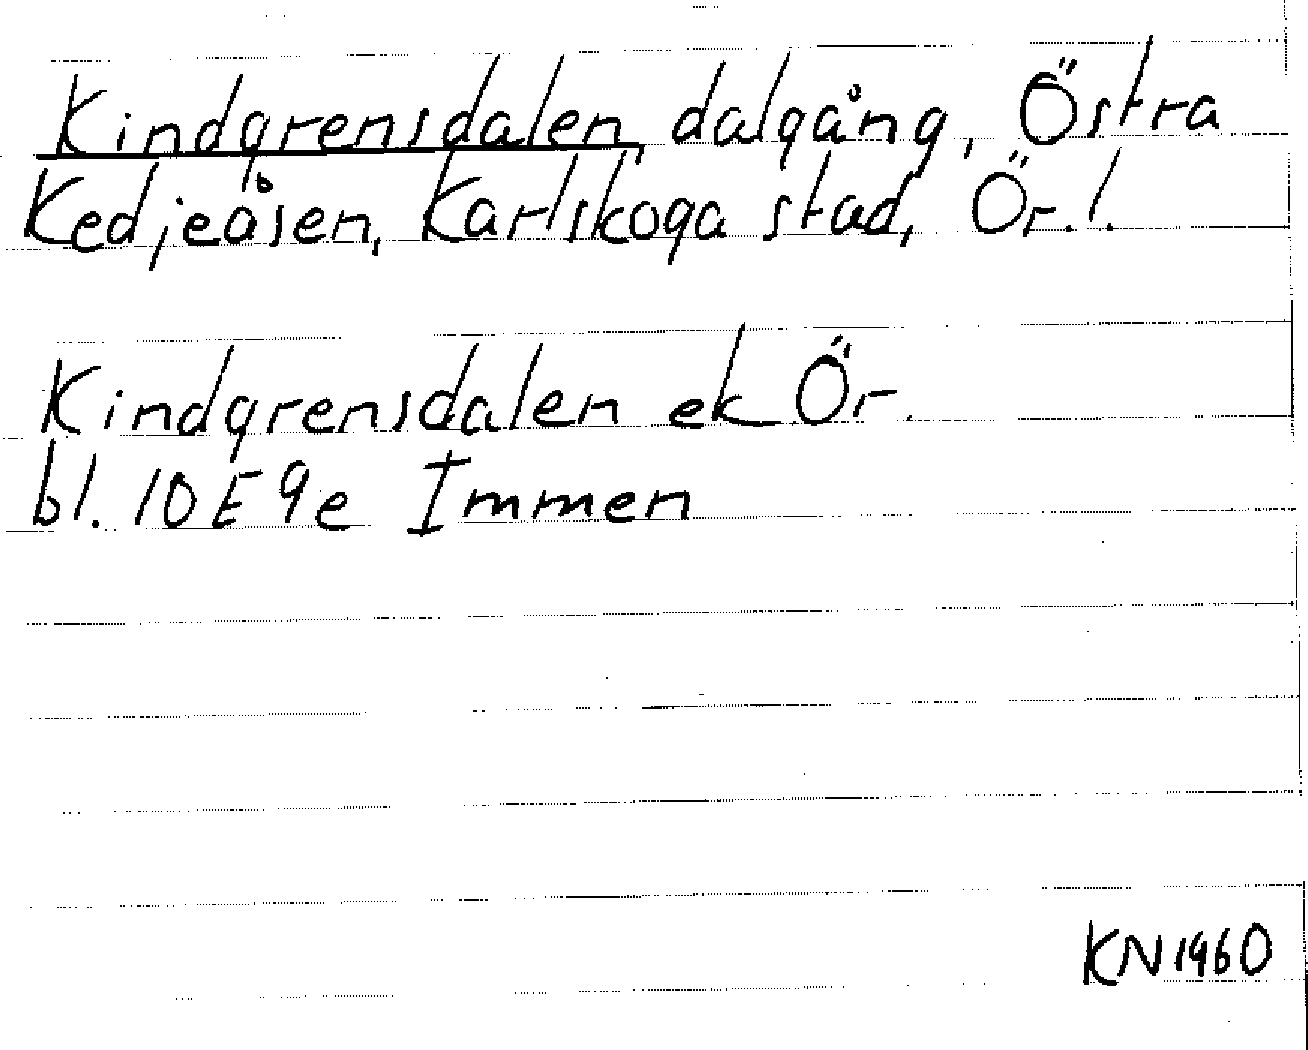 Kindgrensdalen, dalgång, Östra
Kedjeåsen, Karlskoga stad, Ör. l.
Kindgrensdalen ek Ör.
bl. 10 E 9e Immen
KN 1960